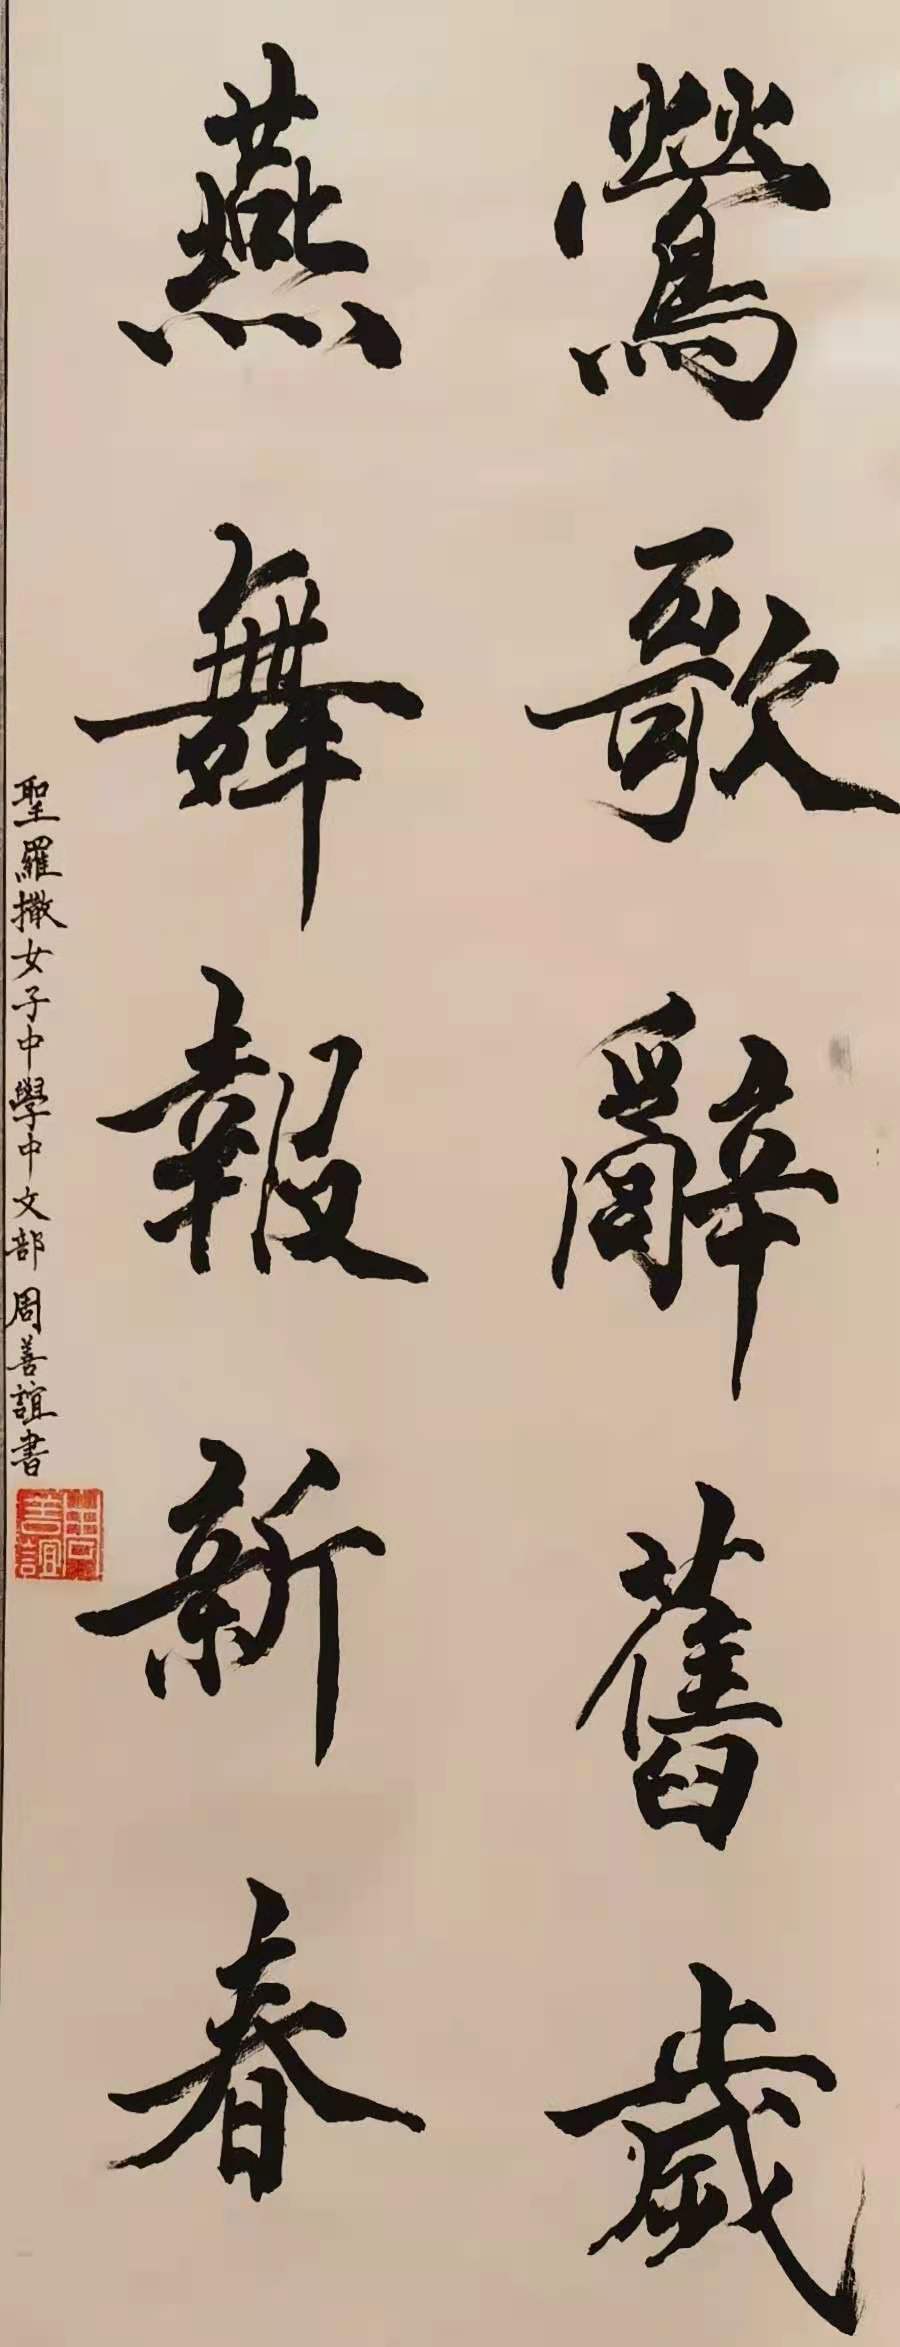 鶯歌辭舊歲
燕舞報新春
聖羅撒女子中學中文部周善誼書
周善誼